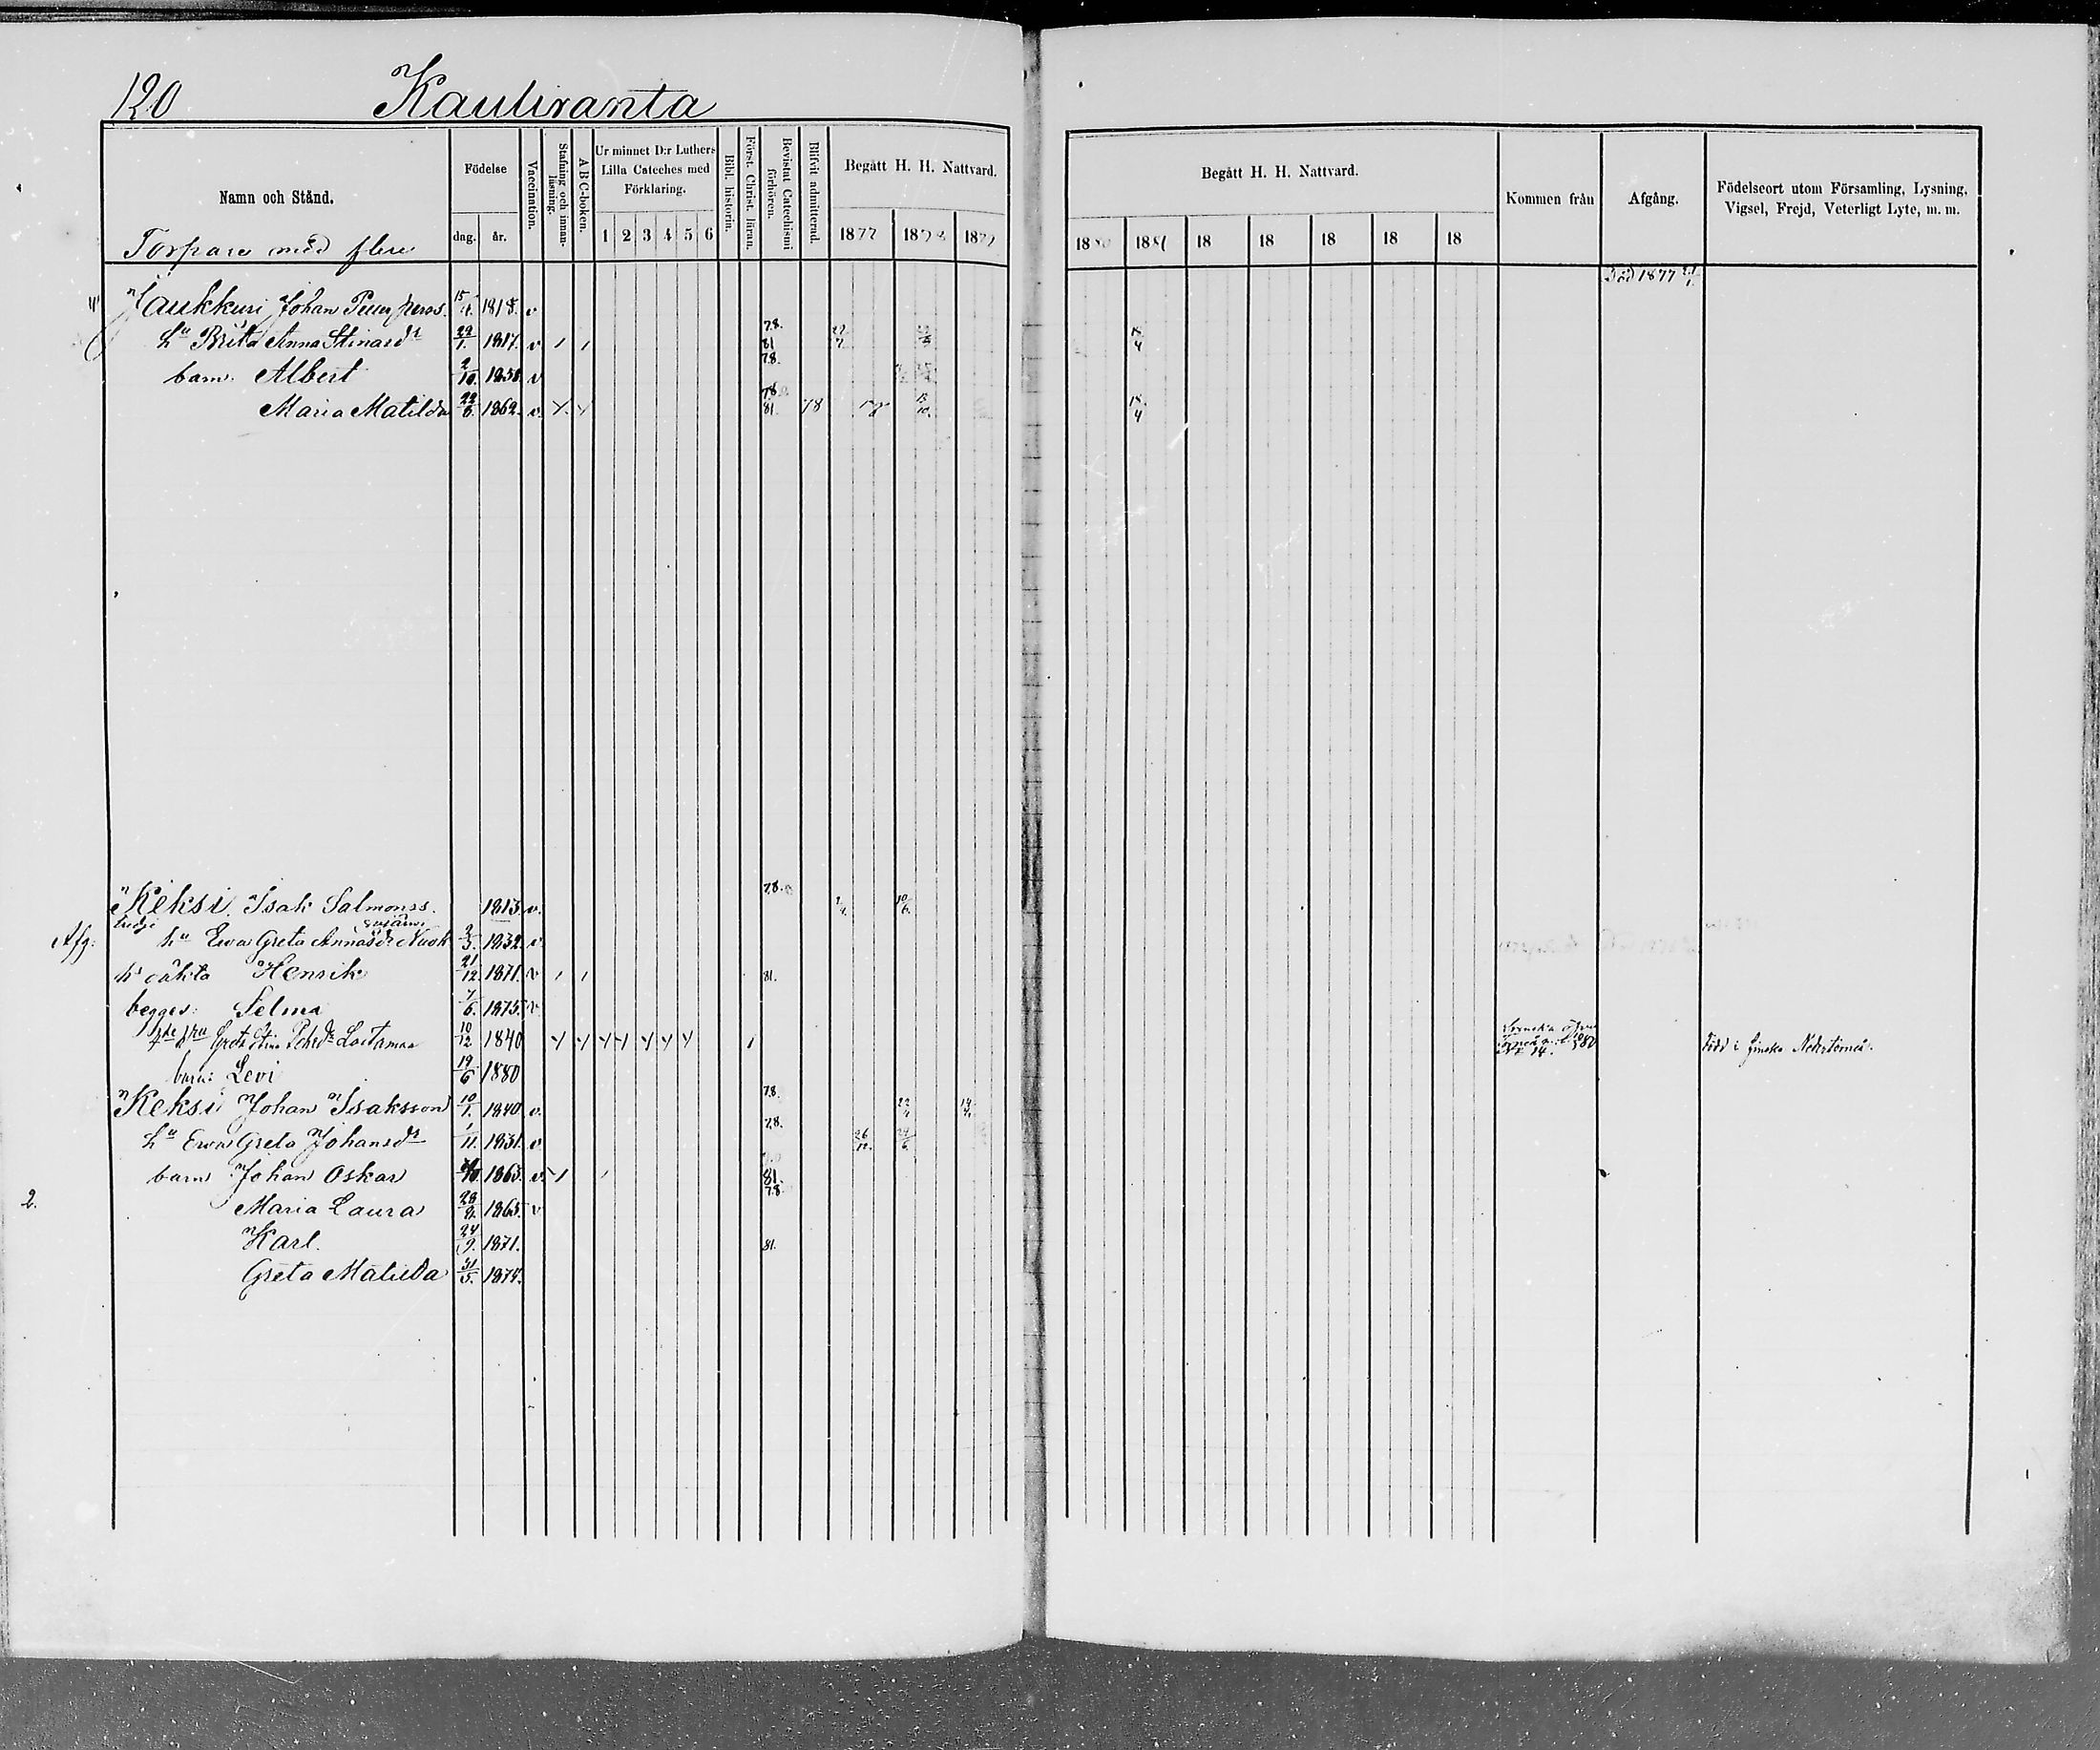 120 Kauliranta
Namn och Stånd.
Födelse
dag. år.
Vaccination.
Stafning och innanläsning.
A B C-boken.
Ur minnet D:r Luthers Lilla Cateches med Förklaring.
1 2 3 4 5 6
Bibl. historin.
Först. Christ. läran.
Bevistat Catechismi förhören.
Blifvit admitterad.
Begått H. H. Nattvard.
1877 1878 1879
Begått H. H. Nattvard.
1880 1881 18 18 18 18 18
Kommen från
Afgång.
Födelseort utom Församling, Lysning, Vigsel, Frejd, Veterligt Lyte, m. m.
Torpare med flere
Död 1877
Haukkuri Johan Petter Perss. 1818. v
hu Brita Anna Stinasdr 22/1. 1817. v 78. 81 18/4
barn Albert 2/10. 1858. v 78.
Maria Matilda 22/6. 1862. v. 78 81 78 18/4
Keksi Isak Salmonss. 1813. v. 78. 10/6.
Afg: hu Ewa Greta Annasdr 1832. v
Henrik 21/12. 1871. v 81.
begges: Selma 7/6. 1875. v
Greta Stina 10/12 1840 No 14. Född i finska Nedertorneå.
barn: Levi 19/6 1880
Keksi Johan Isaksson 10/1. 1840. v. 78.
hu Ewa Greta Johansdr 1/11. 1831. v 78. 26/12.
barn Johan Oskar 1863. v. 81.
2. Maria Laura 1865. v 78.
Karl. 24/9. 1871. 81.
Greta Matilda 31/5. 1874.